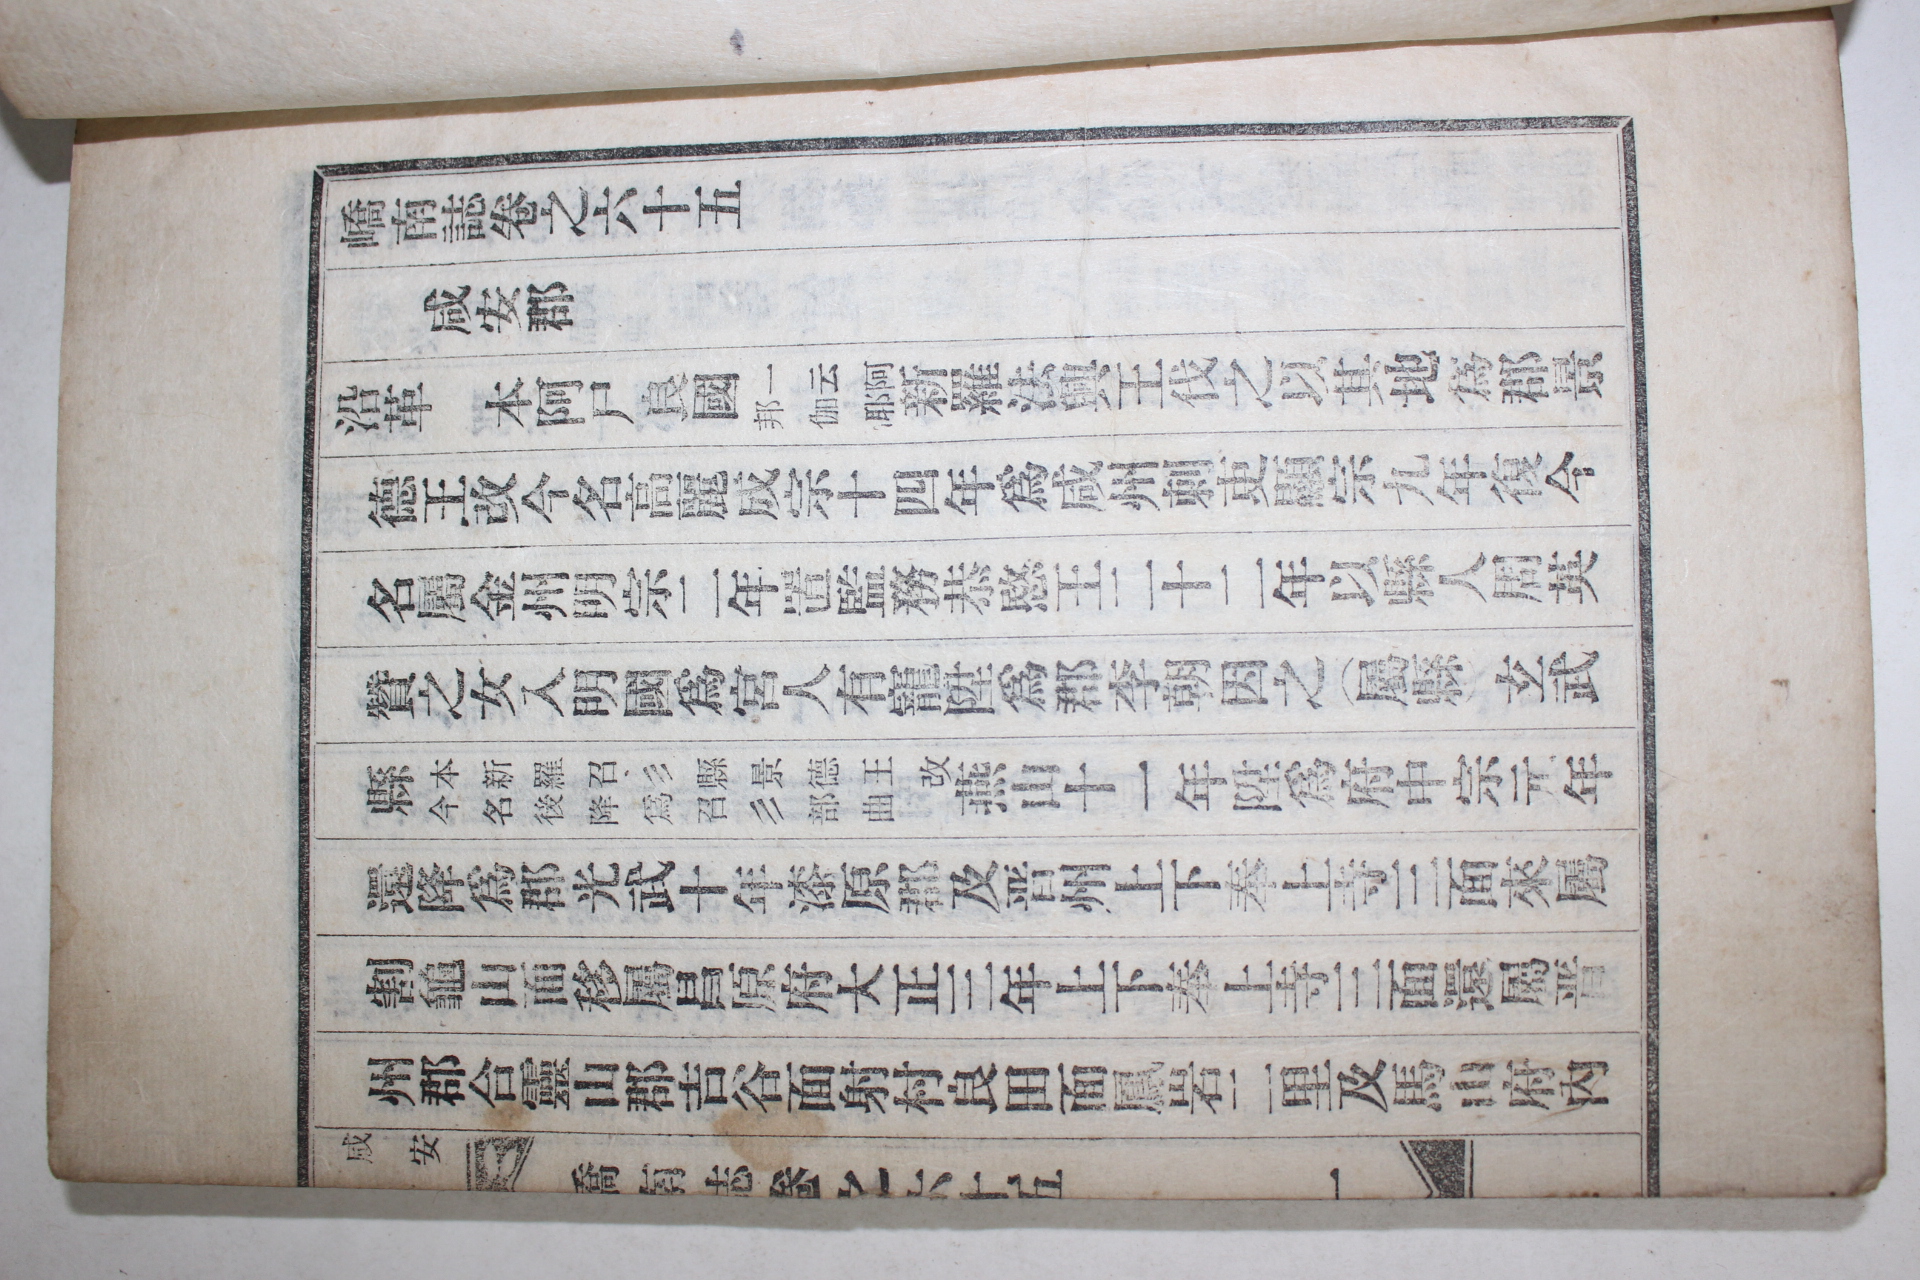 嶠南誌卷之六十五
咸安郡
沿革 本阿尸良國 一云阿邦伽倻 新羅法興王伐之以其地爲郡景
德王改今名高麗成宗十四年爲咸州刺史顯宗九年復今
名屬金州明宗二年置監務恭愍王二十二年以縣人周英
贊之女入明國爲宮人有寵陞爲郡李朝因之(屬縣)玄武
縣 本新羅召彡縣景德王改今名後降爲召彡部曲 燕山十一年陞爲府中宗元年
還降爲郡光武十年漆原郡及晉州上下奉上寺三面來屬
割龜山面移屬昌原府大正三年上下奉上寺三面還屬晉
州郡合靈山郡吉谷面射村良田面鳳岩二里及馬山府內
咸安
嶠南誌卷之六十五 一